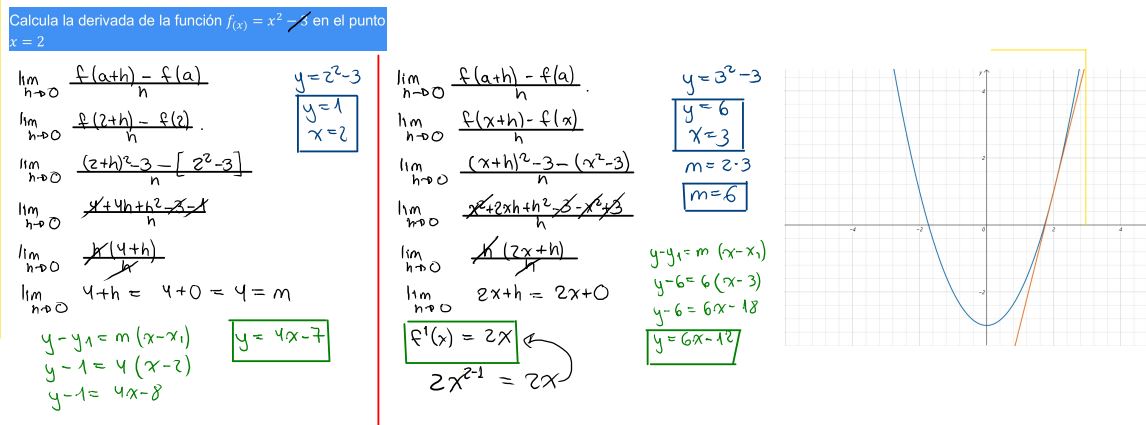 Calcula la derivada de la función f(x) = x² − 3 en el punto
x = 2
lim h→0 f(a+h) − f(a) / h
lim h→0 f(2+h) − f(2) / h .
lim h→0 (2+h)²−3 − [2²−3] / h
lim h→0 4+4h+h²−3−1 / h
lim h→0 h(4+h) / h
lim h→0 4+h = 4+0 = 4 = m
y−y₁ = m(x−x₁)
y−1 = 4(x−2)
y−1 = 4x−8
y = 4x−7
y = 2²−3
y = 1
x = 2
lim h→0 f(a+h) − f(a) / h .
lim h→0 f(x+h) − f(x) / h
lim h→0 (x+h)²−3−(x²−3) / h
lim h→0 x²+2xh+h²−3−x²+3 / h
lim h→0 h(2x+h) / h
lim h→0 2x+h = 2x+0
f'(x) = 2x
2x²⁻¹ = 2x
y = 3²−3
y = 6
x = 3
m = 2·3
m = 6
y−y₁ = m(x−x₁)
y−6 = 6(x−3)
y−6 = 6x−18
y = 6x−12
y
4
2
−4 −2 0 2 4
−2